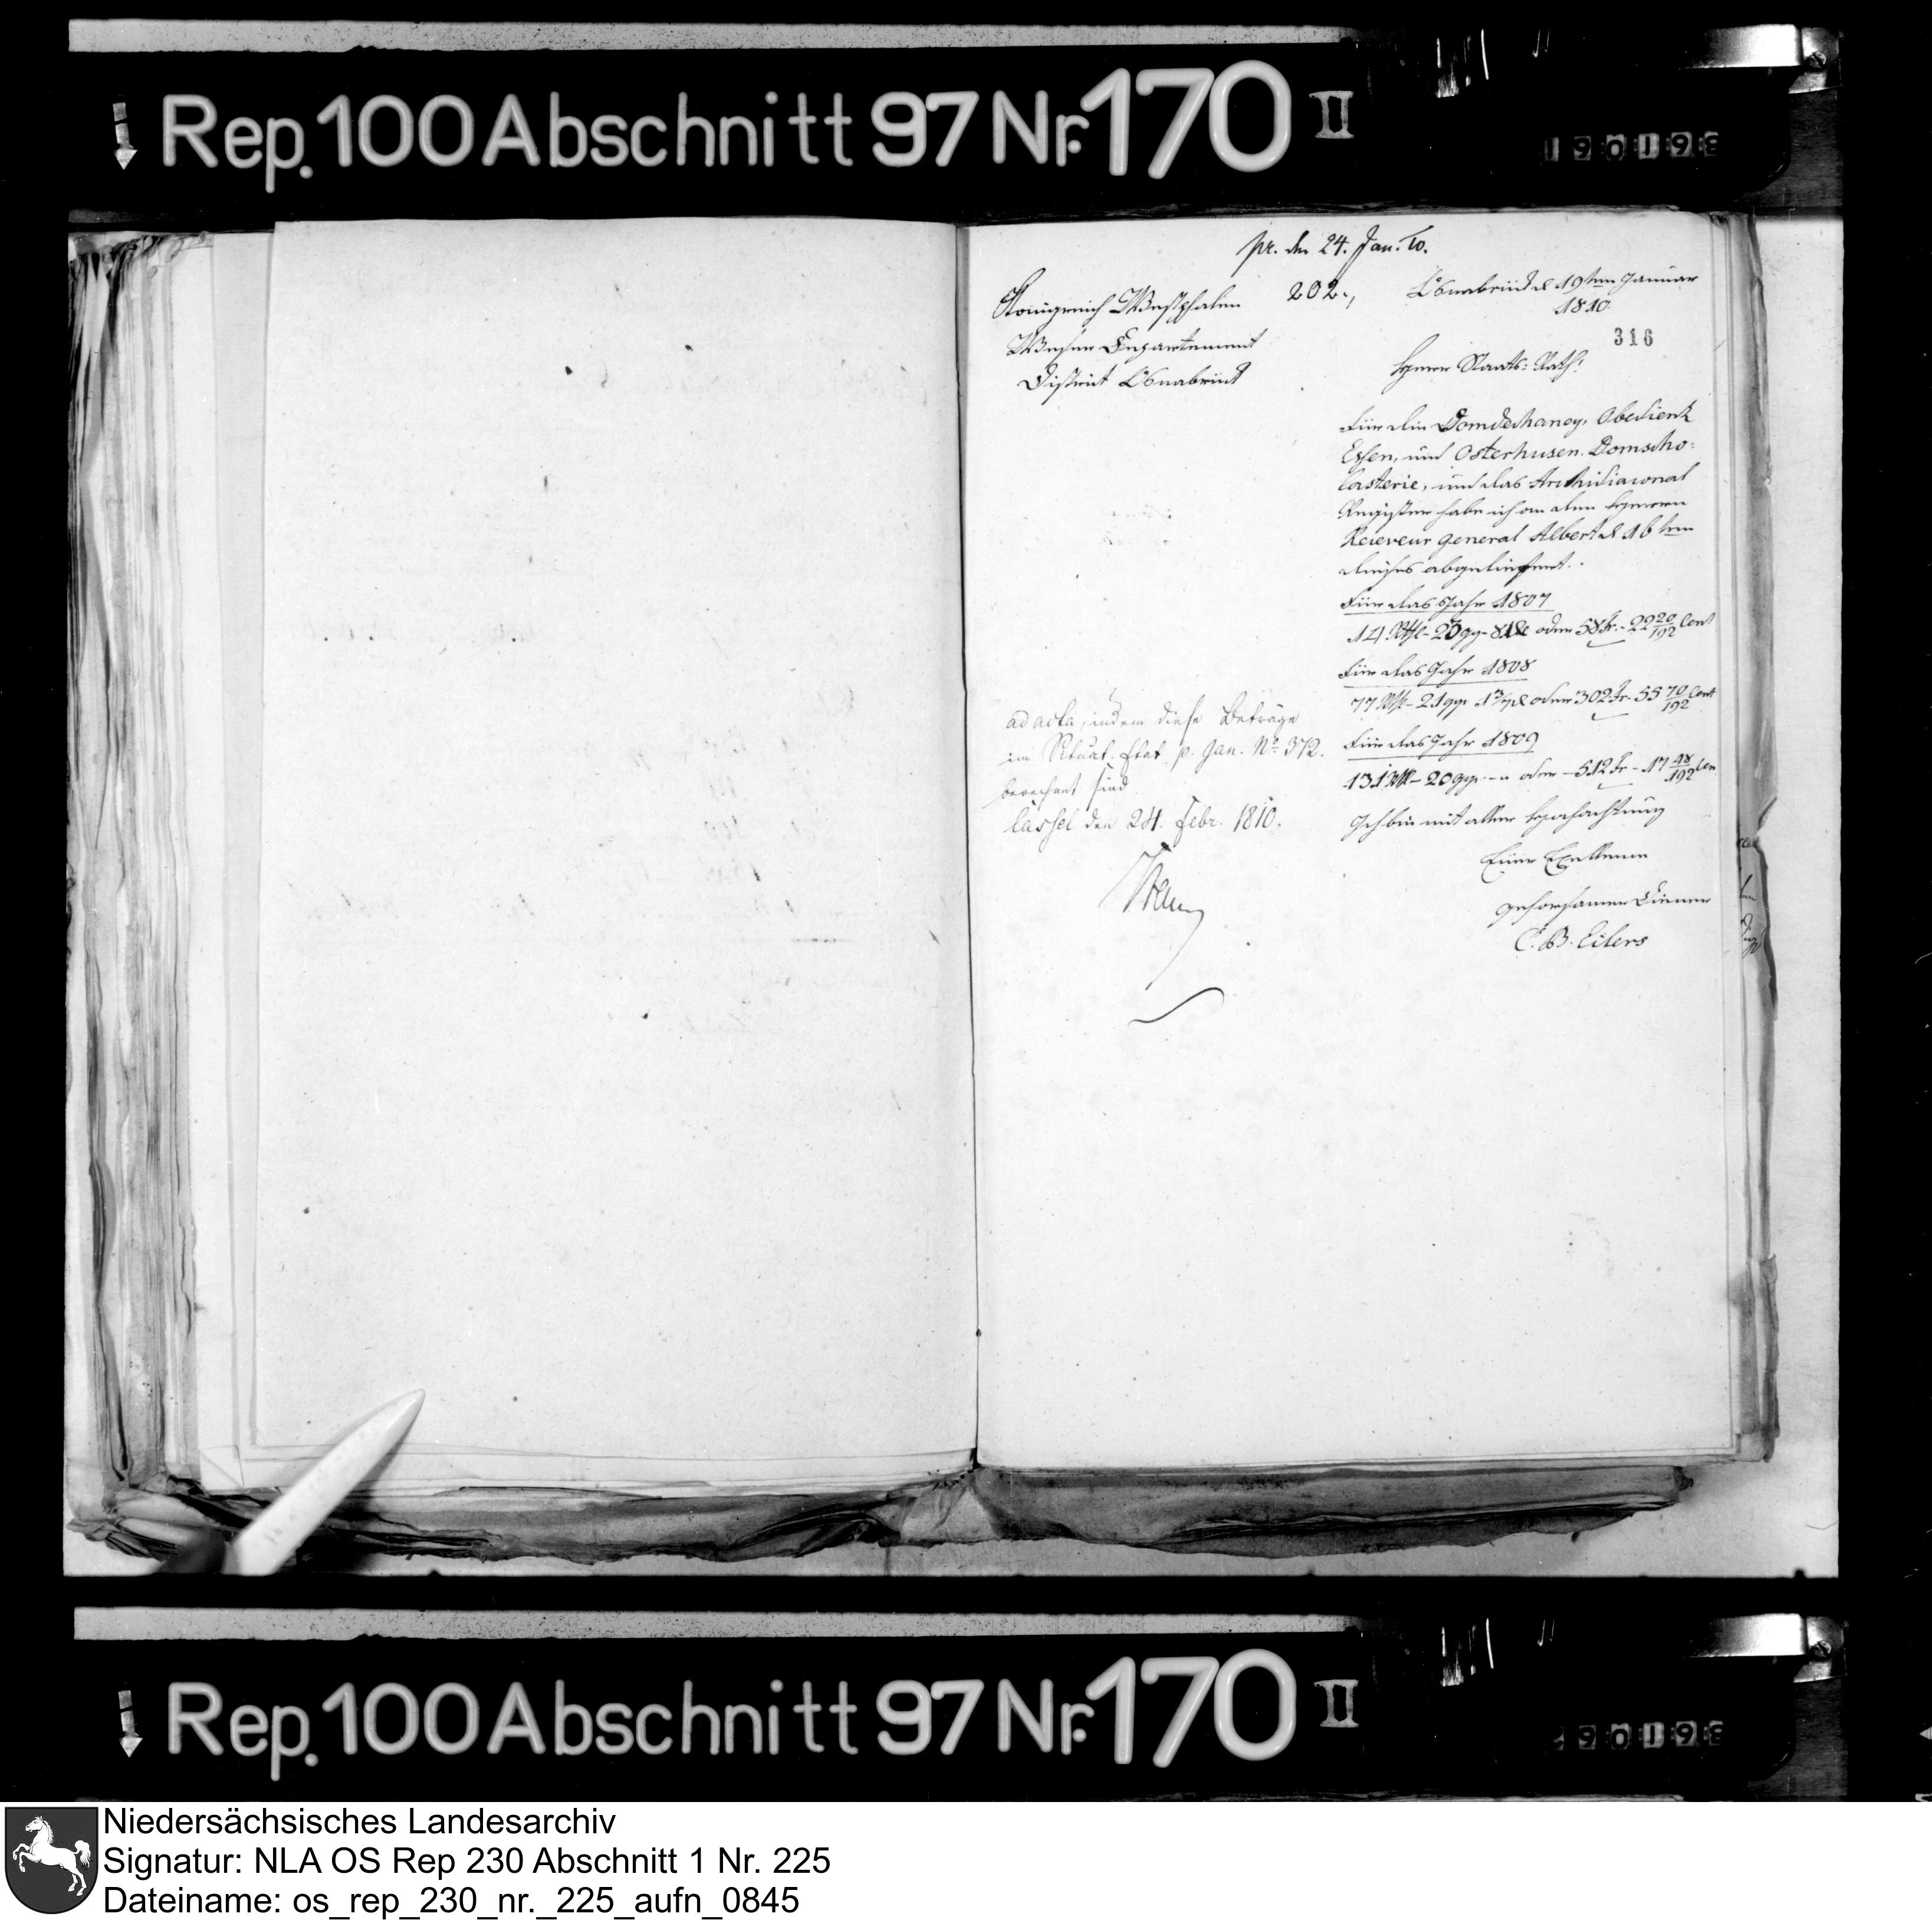 Rep. 100 Abschnitt 97 Nr. 170 II
190198
pr. den 24. Jan. 10.
Königreich Westphalen
Weser Departement
District Osnabrück
202.,
Osnabrück d 19ten Januar
1810
316
Herrn Staats-Rath!
Für die Domdechaney, Obedienz
Essen, und Osterhusen. Domscho-
lasterie, und das Archidiaconal
Register habe ich an den Herrn
Receveur general Albert d 16ten
dieses abgeliefert.
Für das Jahr 1807
oder 58 fr. - 22 20/192 Cent
Für das Jahr 1808
77 Rthl - 21 ggr oder 302 fr. 55 70/192 Cent
Für das Jahr 1809
131 Rthl - 20 ggr - " oder - 512 fr - 17 48/192 Cen
Ich bin mit aller Hochachtung
Euer Excellence
gehorsamer Diener
C. B. Eilers
ad acta, indem diese Beträge
im Situat. Etat p. Jan. No 372.
berechnet sind
Cassel den 24. Febr. 1810.
Rep. 100 Abschnitt 97 Nr. 170 II
90198
Niedersächsisches Landesarchiv
Signatur: NLA OS Rep 230 Abschnitt 1 Nr. 225
Dateiname: os_rep_230_nr._225_aufn_0845